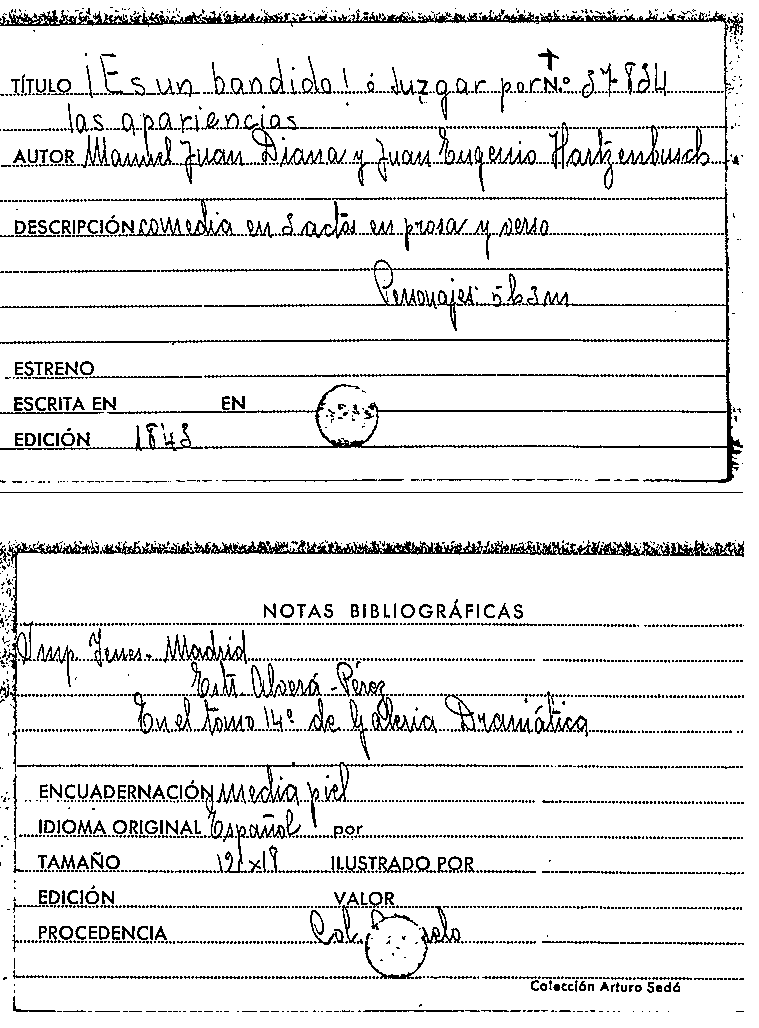 TÍTULO ¡Es un bandido! ó Juzgar por N.º 37-834
las apariencias
AUTOR Manuel Juan Diana y Juan Eugenio Hartzenbusch
DESCRIPCIÓN comedia en 3 actos en prosa y verso
Personajes: 5h 3m
ESTRENO
ESCRITA EN EN
EDICIÓN 1843
NOTAS BIBLIOGRÁFICAS
Imp. Yenes. Madrid
Edit. Alverá-Pérez
En el tomo 14º de Galeria Dramática
ENCUADERNACIÓN media piel
IDIOMA ORIGINAL Español por
TAMAÑO ILUSTRADO POR
EDICIÓN VALOR
PROCEDENCIA Col.
Colección Arturo Sedó